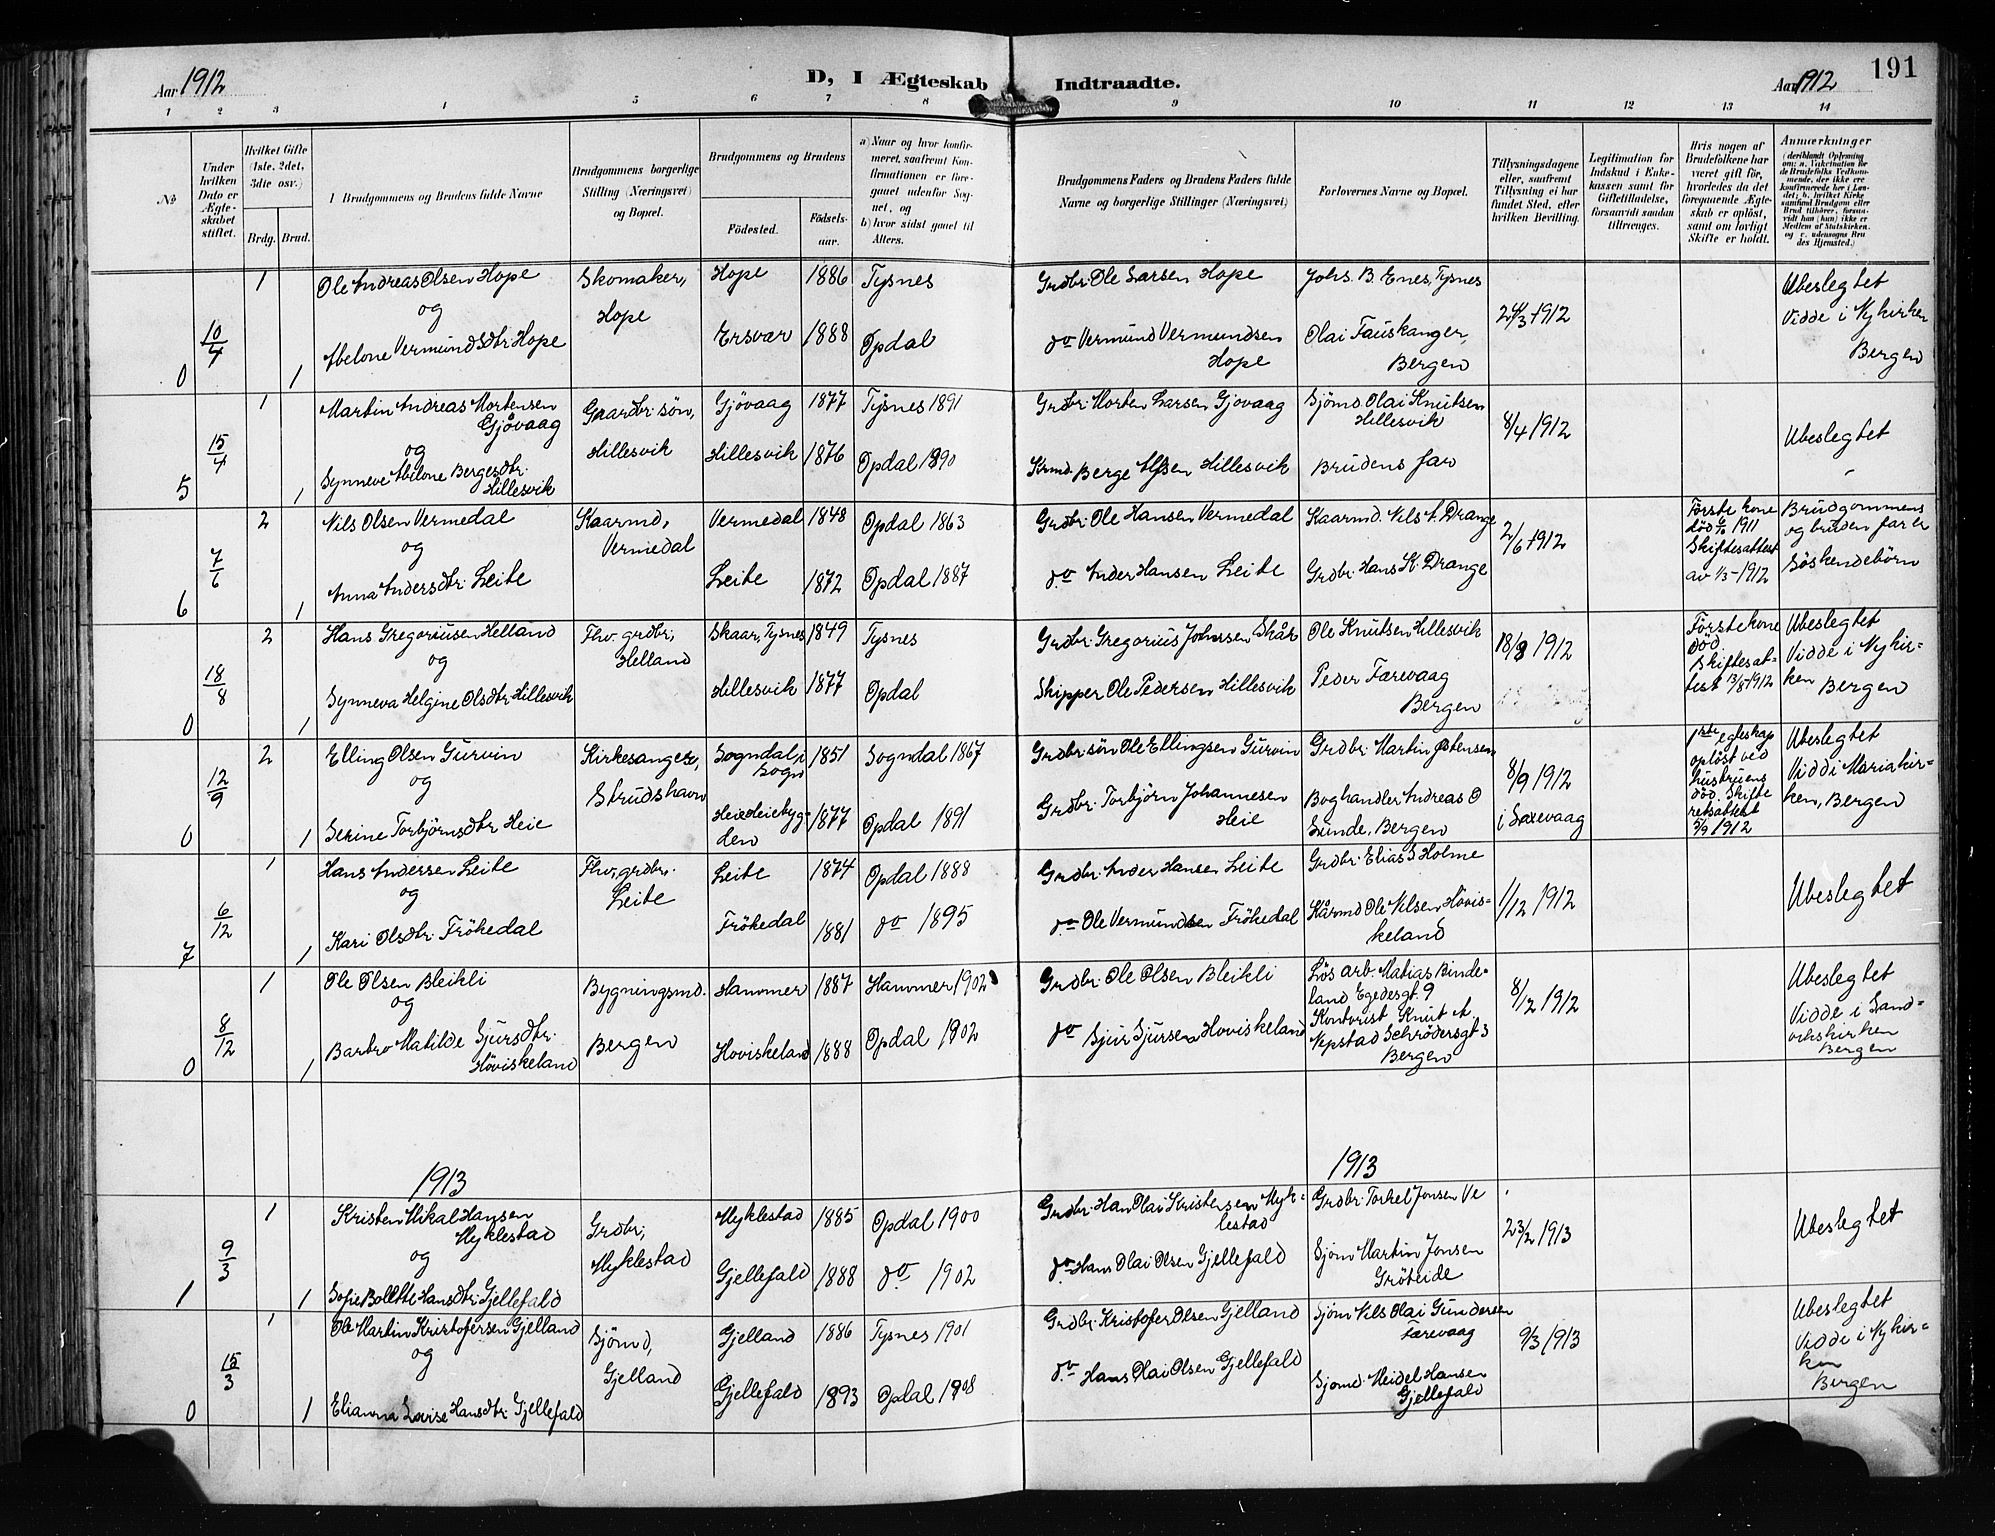 Aar 1912
D, I Ægteskab Indtraadte.
Aar 1912
191
1 2 3 4 5 6 7 8 9 10 11 12 13 14
№
Under hvilken Dato er Ægteskabet stiftet.
Hvilket Gifte (1ste, 2det, 3die osv.)
Brdg. Brud.
Brudgommens og Brudens fulde Navne
Brudgommens borgerlige Stilling (Næringsvei) og Bopæl.
Brudgommens og Brudens
Födested.
Födsels-aar.
a) Naar og hvor konfirmeret, saafremt Konfirmationen er foregaaet udenför Sognet, og
b) hvor sidst gaaet til Alters.
Brudgommens Faders og Brudens Faders fulde Navne og borgerlige Stillinger (Næringsvei)
Forlovernes Navne og Bopæl.
Tillysningsdagene eller, saafremt Tillysning ei har fundet Sted, efter hvilken Bevilling.
Legitimation for Indskud i Enkekassen samt för Giftetilladelse, forsaavidt saadan tiltrænges.
Hvis nogen af Brudefolkene har været gift för, hvorledes da det foregaaende Ægteskab er oplöst, samt om lovligt Skifte er holdt.
Anmærkninger
0 10/4 1 1
Ole Andreas Olsen Hope
og
Abelone Vermundsdtr Hope
Skomaker,
Hope
Hope 1886 Tysnes
Ersvær 1888 Opdal
Grdbr. Ole Larsen Hope
do Vermund Vermundsen
Hope
Johs. B. Enes, Tysnes
Olai Fauskanger,
Bergen
24/3 1912
Ubeslegtet
Vidde i Nykirken
Bergen
5 15/4 1 1
Martin Andreas Mortensen
Gjövaag
og
Synneve Abelone Bergesdtr.
Hillesvik
Gaardbr. sön,
Hillesvik
Gjövaag 1877 Tysnes 1891
Hillesvik 1876 Opdal 1890
Grdbr. Morten Larsen Gjövaag
Krmd. Berge Alfsen Hillesvik
Sjömd Olai Knutsen
Hillesvik
Brudens far
8/4 1912
Ubeslegtet
6 7/6 2 1
Nils Olsen Vermedal
og
Anna Andersdtr. Leite
Kaarmd,
Vermedal
Vermedal 1848 Opdal 1863
Leite 1872 Opdal 1887
Grdbr. Ole Hansen Vermedal
do Ander Hansen Leite
Kaarmd. Nils A. Drange
Grdbr. Hans K. Drange
2/6 1912
Förste kone
död 1911
Skifteattest
av 1/3-1912
Brudgommens
og bruden far er
Söskendebörn
0 18/8 2 1
Hans Gregoriusen Helland
og
Synneva Helgine Olsdtr. Hillesvik
Fhv. grdbr,
Helland
Skaar, Tysnes 1849 Tysnes
Hillesvik 1877 Opdal
Grdbr. Gregorius Johnssen Skår
Skipper Ole Pedersen Hillesvik
Ole Knutsen Hillesvik
Peder Færevaag
Bergen
18/8 1912
Förste kone
död.
Skiftesat-
test 13/8 1912
Ubeslegtet
Vidde i Nykir-
ken Bergen
0 12/9 2 1
Elling Olsen Gurvin
og
Serine Torbjörnsdtr. Heie
Kirkesanger,
Strudshavn
Sogndal i
Sogn 1851 Sogndal 1867
Heie Heiebyg-
den 1877 Opdal 1891
Grdbr. sön Ole Ellingsen Gurvin
Grdbr. Torbjörn Johannesen
Heie
Grdbr. Martin Östensen
Boghandler Andreas O
Sunde, Bergen
8/9 1912
i Saxevaag
1ste egteskap
oplöst ved
hustruens
död. Skifte
retsattest
5/9 1912
Ubeslegtet
Vidd i Mariakir-
ken, Bergen
7 6/12 1 1
Hans Andersen Leite
og
Kari Olsdtr. Frökedal
Fhv. grdbr.
Leite
Leite 1874 Opdal 1888
Frökedal 1881 do 1895
Grdbr. Ander Hansen Leite
do Ole Vermundsen Frökedal
Grdbr. Elias S Holme
Kårmd Ole Nilsen Hövis-
keland
1/12 1912
Ubeslegtet
0 8/12 1 1
Ole Olsen Bleikli
og
Barbro Matilde Sjursdtr.
Höviskeland
Bygningsmd.
Bergen
Hammer 1887 Hammer 1902
Hoviskeland 1888 Opdal 1902
Grdbr. Ole Olsen Bleikli
do Sjur Sjursen Hoviskeland
Lös arb. Matias Binde-
land Egedesgt. 9
Kontorist Knut A.
Nepstad Schrödersgt 3
Bergen
8/12 1912
Ubeslegtet
Vidde i Sand-
vikskirken
Bergen
1913
1913
1 9/3 1 1
Kristen Mikal Hansen
Myklestad
og
Sofie Bolette Hansdtr. Gjellefald
Grdbr,
Myklestad
Myklestad 1885 Opdal 1900
Gjellefald 1888 do 1902
Grdbr. Han Olai Kristensen Myk-
lestad
do Hans Olai Olsen Gjellefald
Grdbr. Torkel Jonsen Ve
Sjöm Martin Jonsen
Gröteide
23/2 1913
Ubeslegtet
0 15/3 1 1
Ole Martin Kristofersen Gjelland
og
Elianna Lovise Hansdtr. Gjellefald
Sjömd,
Gjelland
Gjelland 1886 Tysnes 1901
Gjellefald 1893 Opdal 1908
Grdbr. Kristofer Olsen Gjelland
do Hans Olai Olsen Gjellefald
Sjöm Nils Olai Gundersen
Færevaag
Sjömd. Meidel Hansen
Gjellefald
9/3 1913
Ubeslegtet
Vidde i Nykir-
ken
Bergen